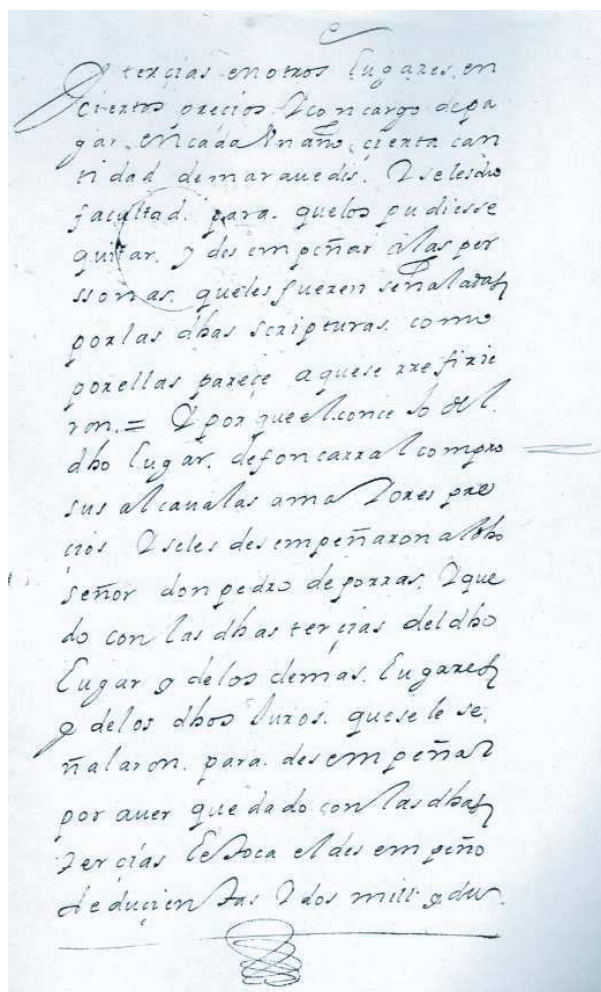 Y terçias en otros lugares, en
çiertos preçios Y con cargo de pa
gar. en cada Un año, çierta can
tidad de marauedis. Y se les dio
facultad. para. que los pudiesse
quitar. y des empeñar a las per
ssonas. que les fueren señaladas
por las dhas scripturas. como
por ellas pareçe a que se rrefirie
ron. = Y por que el conçejo del.
dho lugar. de foncarral compro
sus alcaualas a maYores pre
çios Y se les des empeñaron al dho
señor don pedro de porras. Y que
do con las dhas terçias del dho
lugar y de los demas. lugares
y de los dhos Juros. que se le se,
ñalaron. para. des empeñar
por auer que dado con las dhas
terçias le toca el des empeño
de duçientas Y dos mill y du.